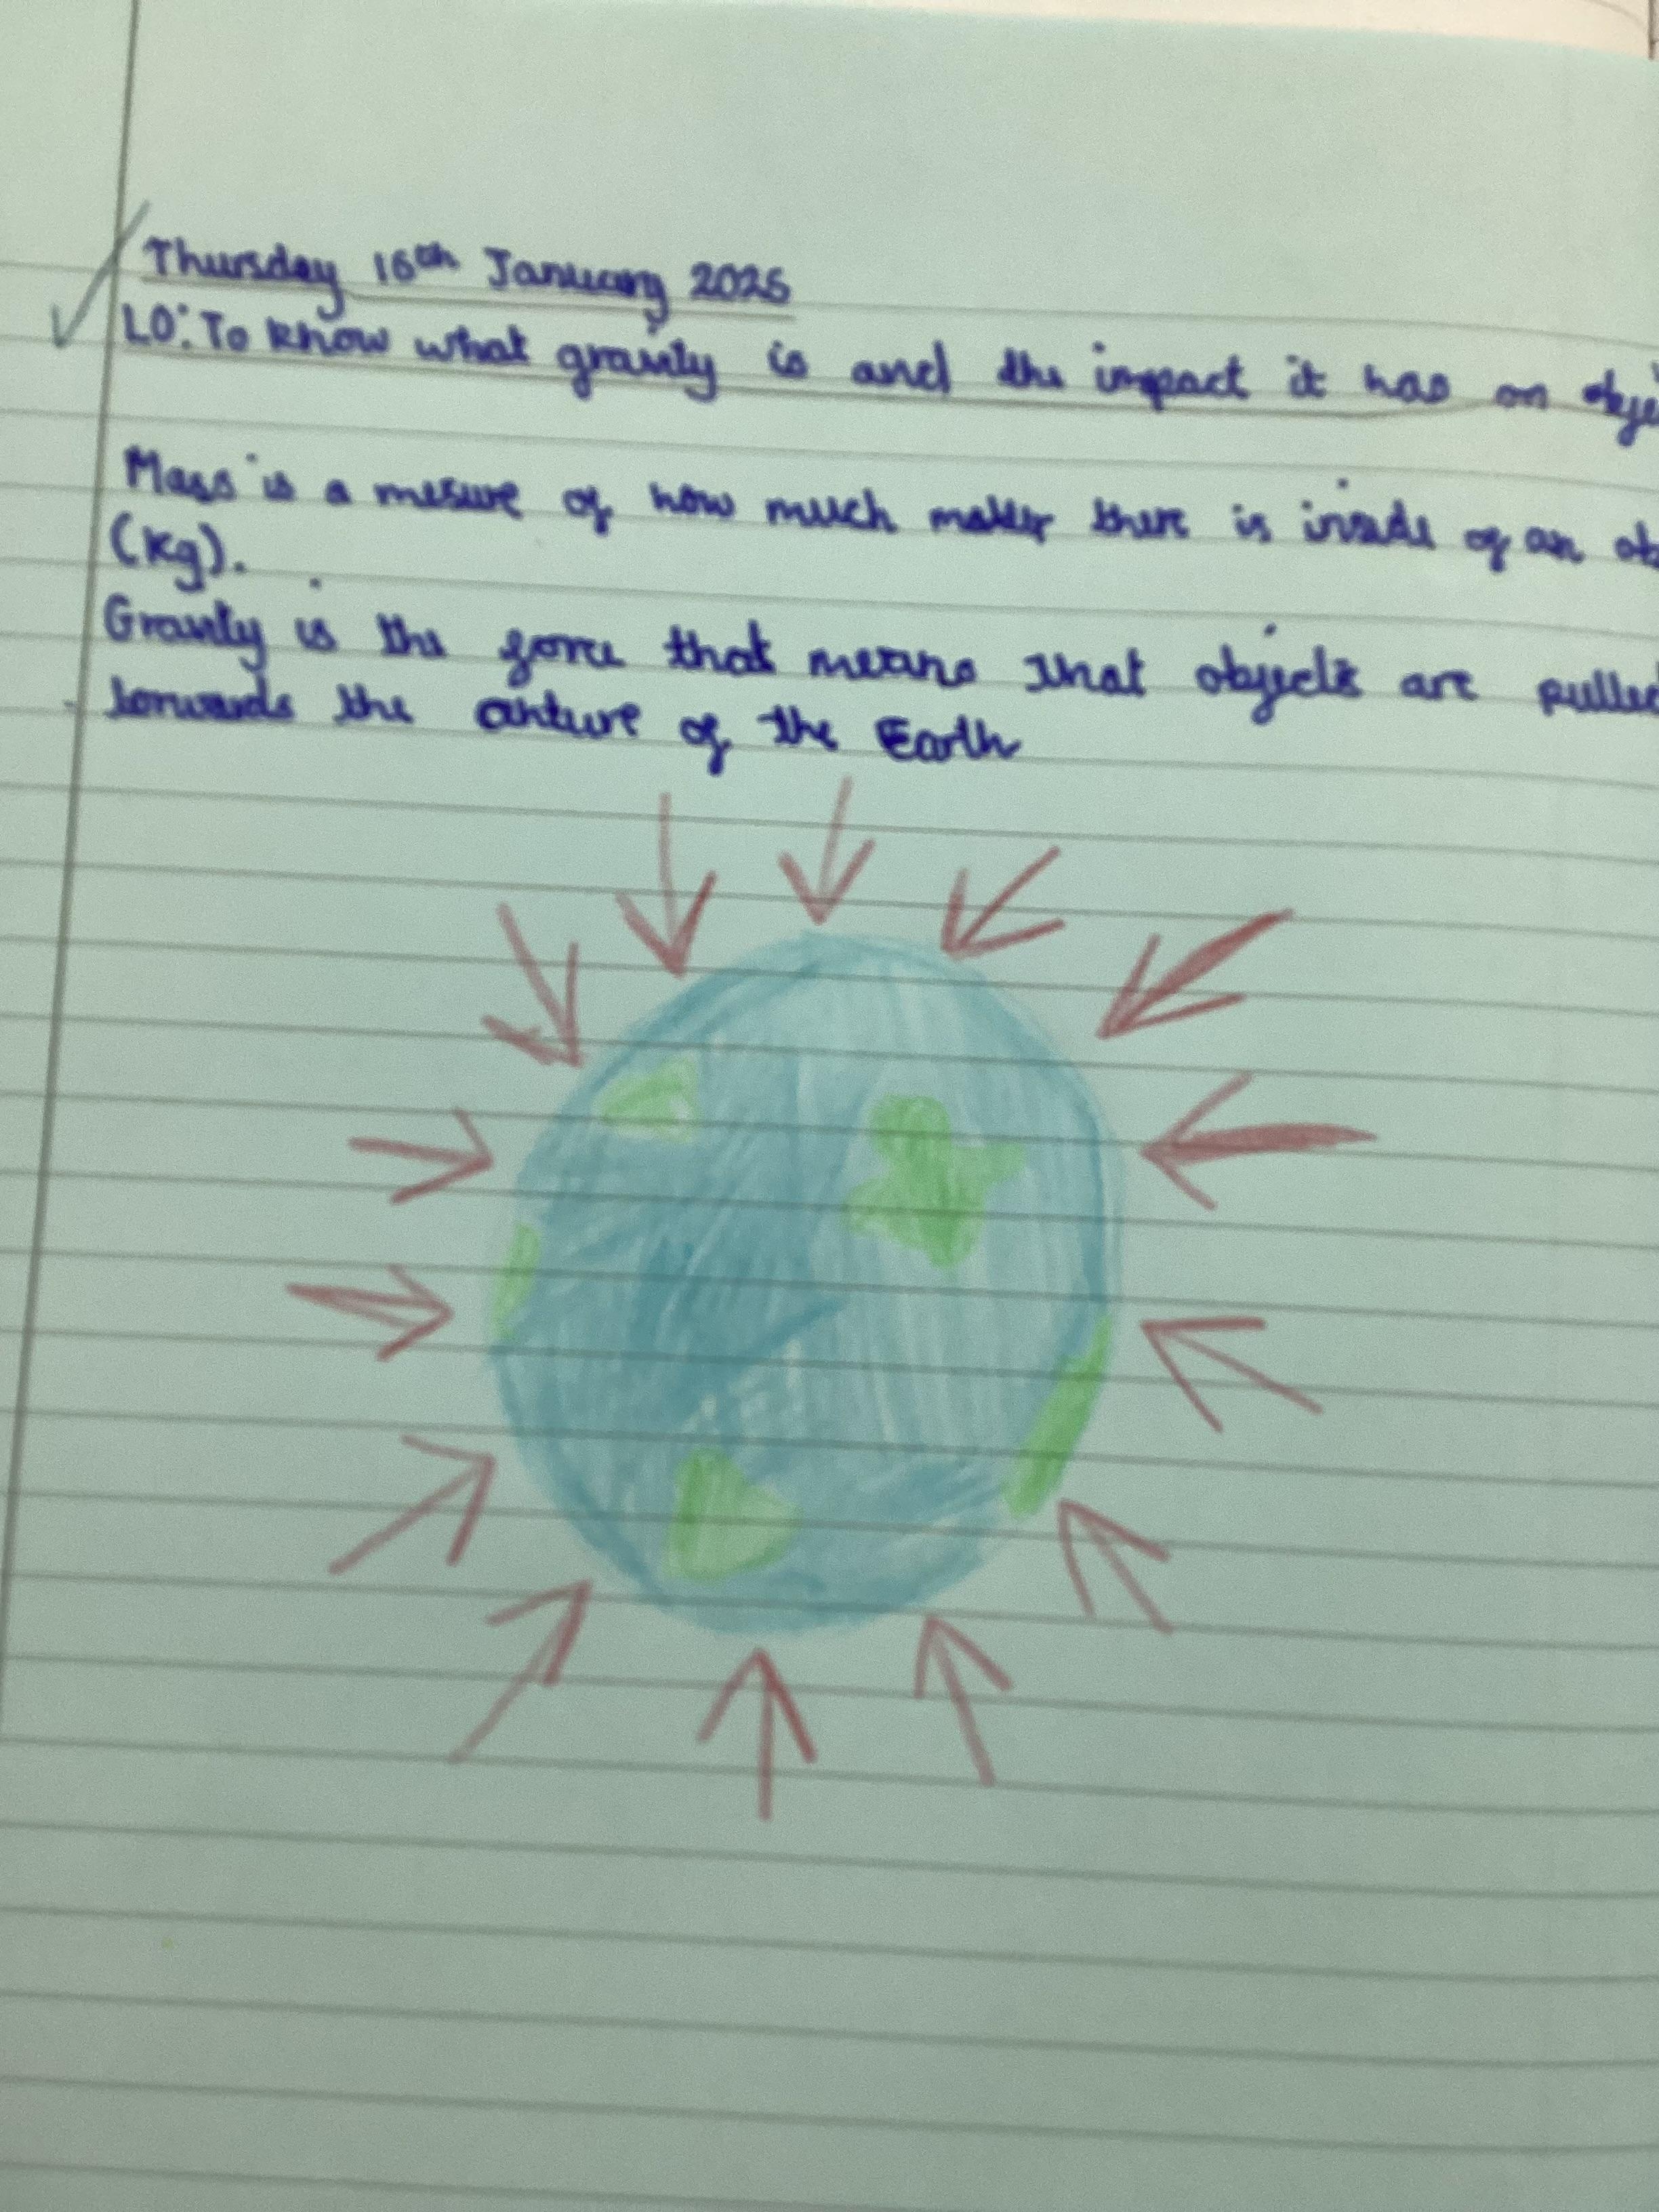 Thursday 16th January 2025
LO: To know what gravity is and the impact it has on obje
Mass is a mesure of how much matter there is inside of an ob
(Kg).
Gravity is the force that means that objects are pulled
towards the centure of the Earth